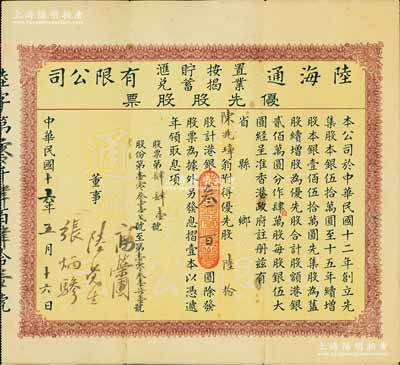 上海陽明拍賣
陸海通置業按揭貯蓄滙兌有限公司
優先股股票
本公司於中華民國十二年創立先
集股本銀伍拾萬圓至十五年續增
股本銀壹佰伍拾萬圓先集股為舊
股續增股為優先股合計股額港銀
貳佰萬圓分作肆萬股每股銀伍大
圓經呈准香港政府註册茲有
省 縣 鄉
陳兆瑋翁附得優先股 陸拾
股計港銀 叁百 圓除發
股票為據外另發息摺壹本以憑遞
年領取息項
股票第 肆肆壹 號
董事
陸羌生
張炳驂
中華民國十 年 五 月 十六 日
上海陽明拍賣